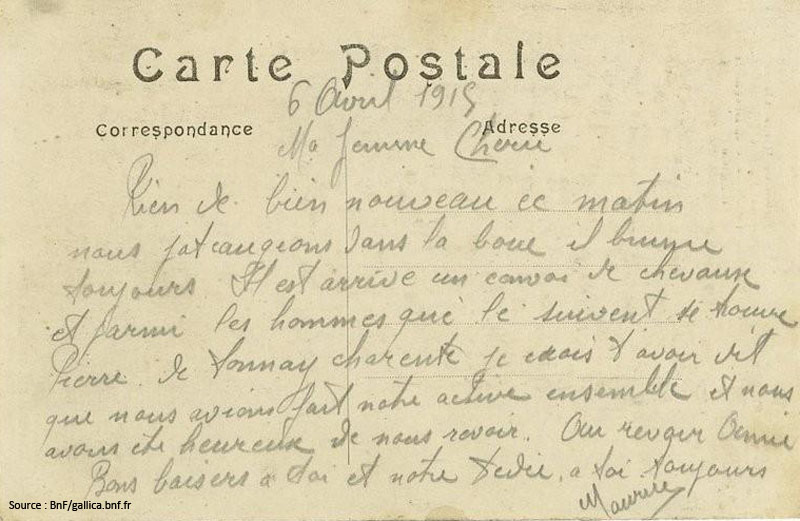 Carte Postale
6 Avril 1915
Correspondance
Adresse
Ma femme Cherie
Rien de bien nouveau ce matin
nous pataugeons dans la boue il brume
toujours Il est arrivé un convoi de chevaux
et parmi les hommes qui le suivent se trouve
Pierre de Tonnay charente je crois t'avoir dit
que nous avions fait notre active ensemble et nous
avons été heureux de nous revoir. Au revoir
Bons baisers a toi et notre Dédée, a toi toujours
Maurice
Source : BnF/gallica.bnf.fr